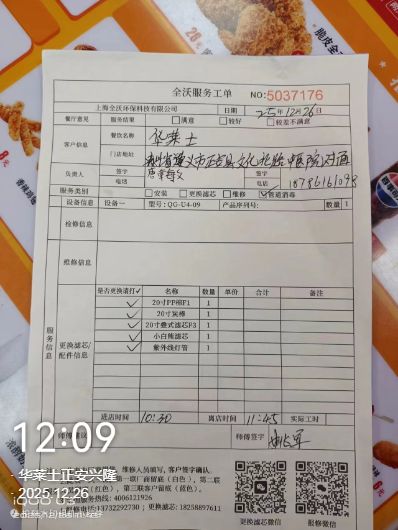 全沃服务工单 NO:5037176
上海全沃环保科技有限公司 日期 25年12月26日
餐厅意见 服务结果 □满意 □较好 □较差不满意
客户信息 餐饮名称 华莱士
门店地址 市正安县文化北路中医院对面
负责人 签字 签字
电话 电话 18786161098
服务类别 □安装 □更换滤芯 □维修 ☑管道消毒
设备信息 设备一 型号:QG-U4-09 产品序列号: 数量 1
检修信息
维修信息
服务信息
是否更换请打✓ 名称 数量 单价 合计 备注
✓ 20寸PP棉F1 1
✓ 20寸炭棒 1
✓ 20寸叠式滤芯F3 1
✓ 小白熊滤芯 1
✓ 紫外线灯管 1
更换滤芯/配件信息
进店时间 10:30 离店时间 11:45 实际工时
师傅签字
12:09
华莱士正安兴隆
2025.12.26
维修人员填写,客户签字确认
一联:商留底(白色),第二联
(蓝色),第三联客户留底(黄色)。
服务热线:4006121926
报修电话:13732292730;报修微信:18258897611
更换滤芯微信 报修微信